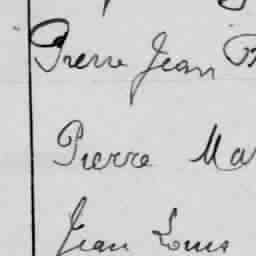 Pierre Jean
Pierre Ma
Jean Louis